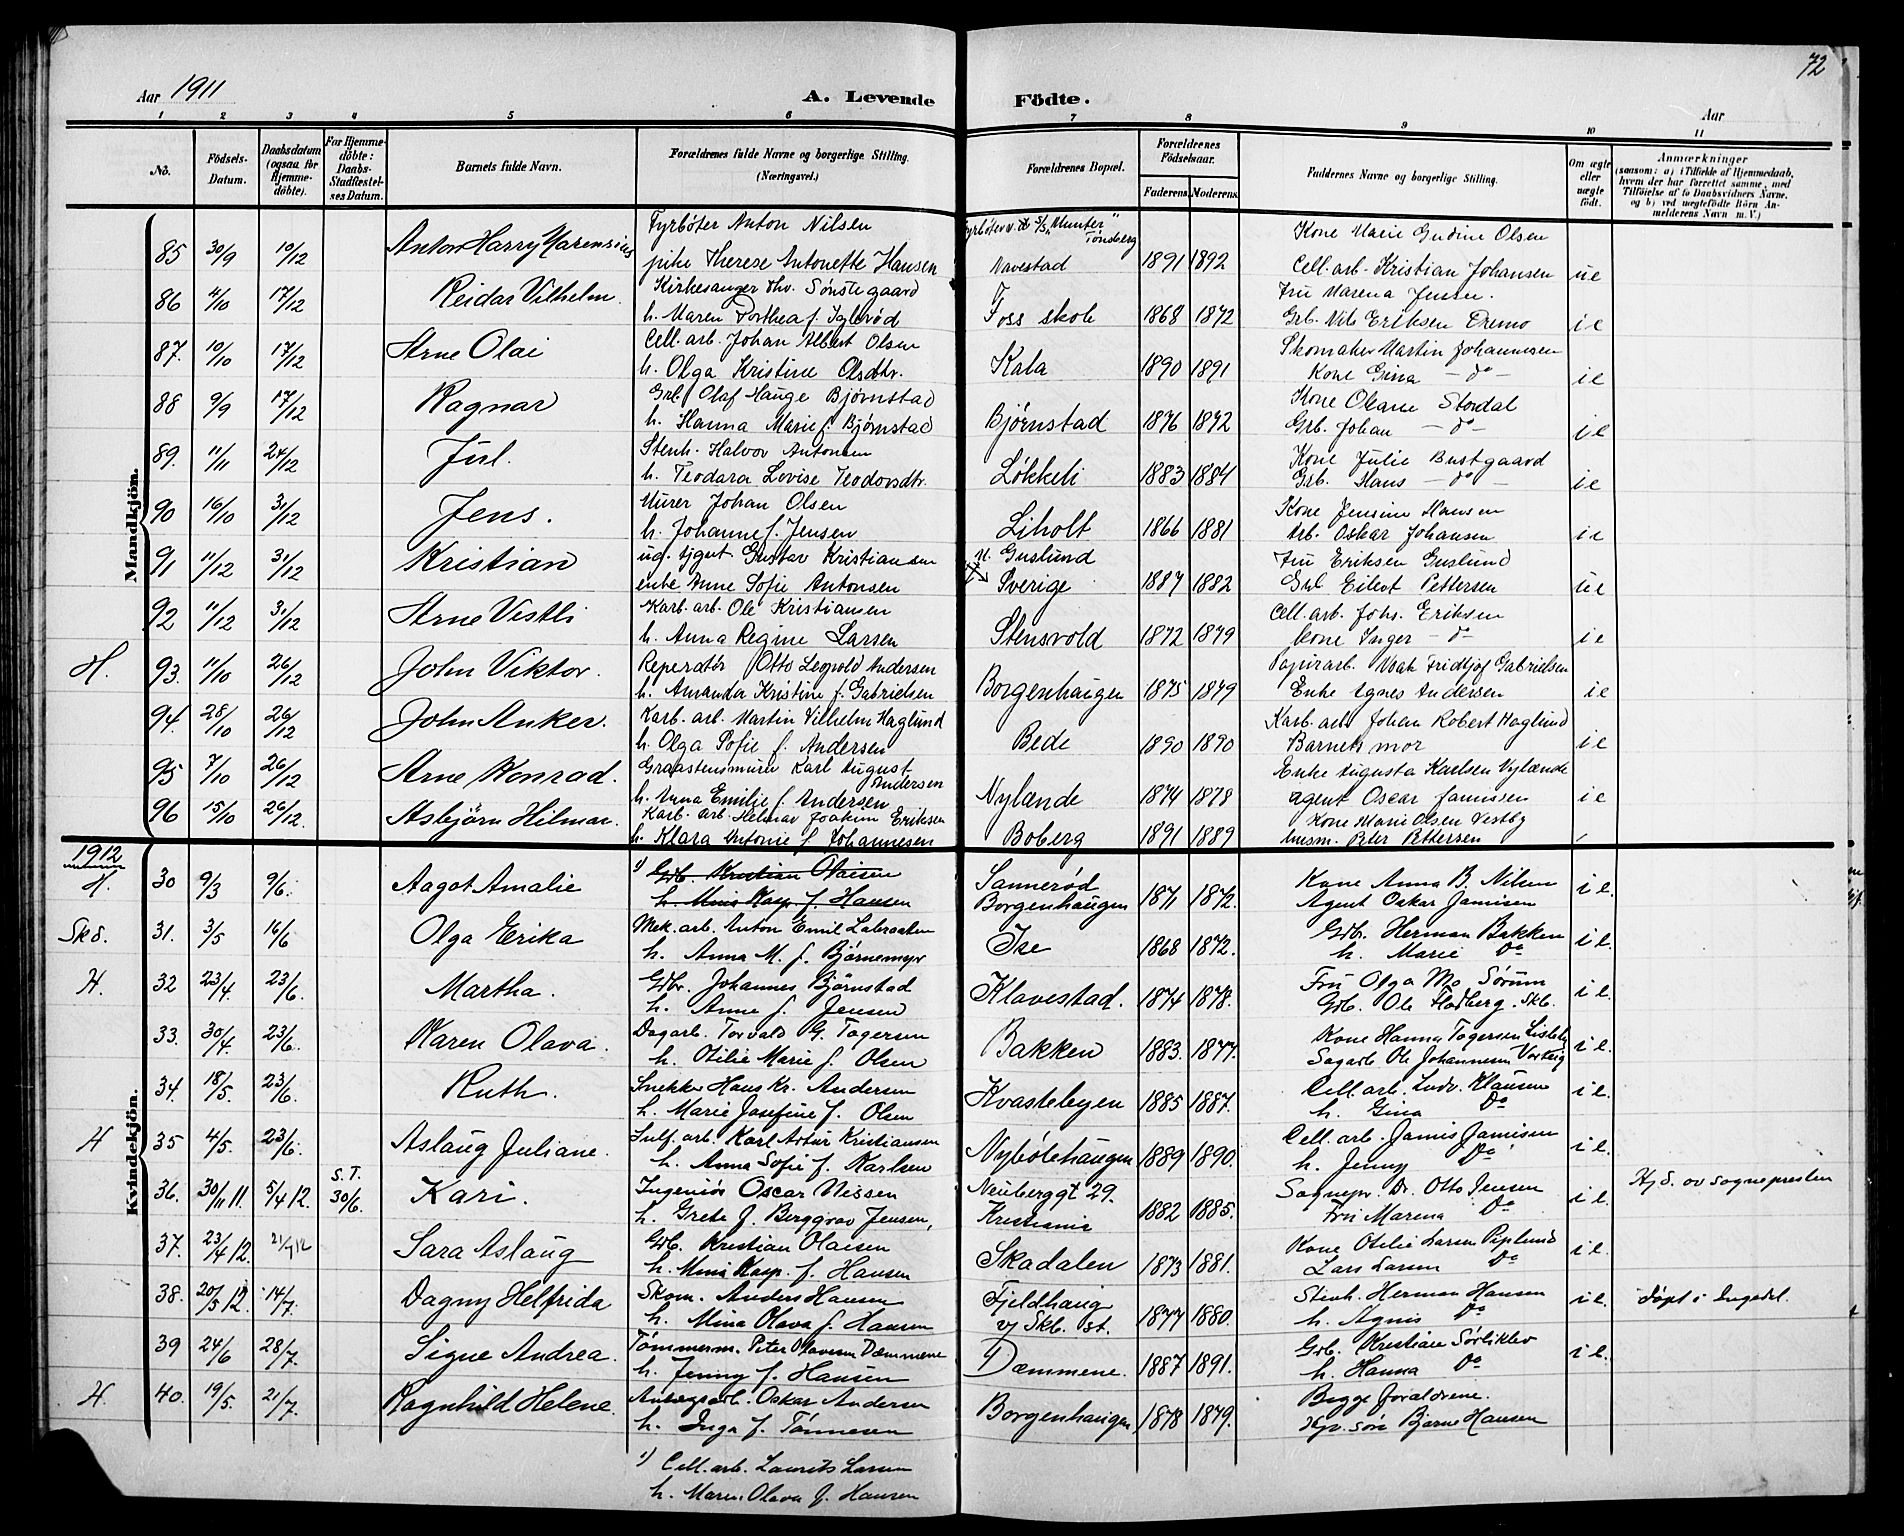 72
Aar 1911
A. Levende Födte.
Aar
1 2 3 4 5 6 7 8 9 10 11
No. Födsels-Datum. Daabsdatum (ogsaa for Hjemme-döbte). For Hjemme-döbte: Daabs-Stadfæstel-ses Datum. Barnets fulde Navn. Forældrenes fulde Navne og borgerlige Stilling. (Næringsvei.) Forældrenes Bopæl. Forældrenes Födselsaar. Faderens. Moderens. Faddernes Navne og borgerlige Stilling. Om ægte eller uægte födt. Anmærkninger (saasom: a) i Tilfælde af Hjemmedaab, hvem der har forrettet samme, med Tilföielse af to Daabsvidners Navne, og b) ved uægtefödte Börn Anmelderens Navn m. V.)
Mandkjön.
Fyrbøter Anton Nilsen Fyrbøter v. S/S "Munter" Tönsberg Kone Marie Gudine Olsen
85 30/9 10/12 Anton Harry Marensius pike Therese Antonette Hansen Navestad 1891 1892 Cell.arb. Kristian Johansen ue
Kirkesanger Thv. Sönstegaard Fru Marena Jensen.
86 4/10 17/12 Reidar Vilhelm. h. Maren Dorthea f. Igleröd Foss skole 1868 1872 Grb. Nils Eriksen Dremo ie
Cell. arb. Johan Albert Olsen Skomaker Martin Johannesen
87. 10/10 17/12 Arne Olai h. Olga Kristine Olsdtr. Kala 1890 1891 Kone Gina — do — ie
Grb. Olaf Hauge Bjørnstad Kone Olane Stordal
88 9/9 17/12 Ragnar h. Hanna Marie f. Bjørnstad Bjørnstad 1876 1872 Grb. Johan — do — ie
Stenh. Halvor Antonsen Kone Julie Bustgaard
89. 11/11 24/12 Jul. h. Teodara Lovise Teodorsdtr. Løkkeli 1883 1884 Grb. Hans — do — ie
Murer Johan Olsen Kone Jensine Hansen
90 16/10 31/12 Jens. h. Johanne f. Jensen Liholt 1866 1881 Arb. Oskar Johansen ie
ug. sjgut Gustav Kristiansen N. Guslund Fru Eriksen Guslund
91 11/12 31/12 Kristian enke Anne Sofie Antonsen Sverige 1887 1882 Grb Eilert Pettersen ue
Karb. arb. Ole Kristiansen Cell. arb. Johs. Eriksen
92 11/12 31/12 Arne Vestli h. Anna Regine Larsen Stensvold 1872 1879 kone Inger — do ie
Reperatör Otto Leopold Andersen Papirarb. Fridtjof Gabrielsen
H. 93. 11/10 26/12 John Viktor. h. Amanda Kristine f. Gabrielsen Borgenhaugen 1875 1879 Enke Agnes Andersen ie
Karb. arb. Martin Vilhelm Haglund Karb. arb Johan Robert Haglund
94. 28/10 26/12 John Anker. h. Olga Sofie f. Andersen Bede 1890 1890 Barnets mor ie
Graastensmurer Karl August Andersen Enke Augusta Karlsen Nylænde
95 7/10 26/12 Arne Konrad. h. Anna Emilie f. Andersen Nylænde 1874 1878 agent Oscar Jamissen ie
Karb. arb. Helmar Joakim Eriksen Kone Marie Olsen Vestby
96 15/10 26/12. Asbjörn Hilmar. h. Klara Antonie f. Johannesen Boberg 1891 1889 husm. Peter Pettersen
1912
Kvindekjön.
1) Grb. Kristian Olaisen Sannerød Kone Anna B. Nilsen
H. 30 9/3 9/6. Aagot Amalie h. Mina Kasp. f. Hansen Borgenhaugen 1871 1872. Agent Oskar Jamisen i e.
Mek. arb. Anton Emil Labraaten Grb. Herman Bakken
Sk s. 31. 3/5 16/6 Olga Erika h. Anna M. f. Bjørnemyr Ise 1868 1872. h. Marie Do i e.
Grbr. Johannes Bjørnstad Fru Olga Mo Sørum
H. 32 23/4. 23/6. Martha. h. Anne f. Jensen Klavestad. 1874 1878. Grb. Ole Flodberg. Skb. i e.
Dagarb. Torvald G. Togersen Kone Hanna Togersen Lisleby
33. 30/4. 23/6. Karen Olava. h. Otilie Marie f. Olsen Bakken 1883. 1877. Sagarb Ole Johannesen Varteig i e.
Snekker Hans Kr. Andersen Cell. arb. Ludv. Klausen
34. 18/5. 23/6. Ruth. h. Marie Josefine f. Olsen Kvastebyen 1885 1887. h. Gina Do i e.
Sulf. arb. Karl Artur Kristiansen Cell. arb. Jamis Jamisen
H 35 4/5. 23/6. Aslaug Juliane. h. Anna Sofie f. Karlsen Nybølehaugen 1889 1890. h. Jenny Do i e.
S.T. Ingeniör Oscar Nissen Neuberggt 29. Sognepr. Dr. Otto Jensen Hj d. av sognepresten
36. 30/11 11. 5/4 12. 30/6. Kari. h. Grete f. Berggrav Jensen, Kristiania 1882 1885. Fru Marena Do i e.
Grb. Kristian Olaisen Kone Otilie Larsen Piplund
37. 23/4 12. 21/7 12 Sara Aslaug h. Mina Kasp. f. Hansen Skadalen 1873 1881. Lars Larsen Do i e.
Skom. Anders Hansen Fjeldhaug Stenh. Herman Hansen
38. 20/5 12. 14/7. Dagny Helfrida h. Mina Olava f. Hansen v/ Skb. st. 1877 1880. h. Agnis Do i e. Døpt i Ingedal.
Tömmerm. Peter Olavsen Dæmmene Grb. Kristian Sørlikler
39 24/6 28/7. Signe Andrea. h. Jenny f. Hansen Dæmmene. 1887 1891. h. Hanna Do i e.
Oskar Andersen Begge foraldrene.
H. 40. 19/5. 21/7. Ragnhild Helene. h. Inga f. Tönnesen Borgenhaugen 1878 1879. Bjarne Hansen
1) Cell. arb. Laurits Larsen
h. Maren Olava f. Hansen